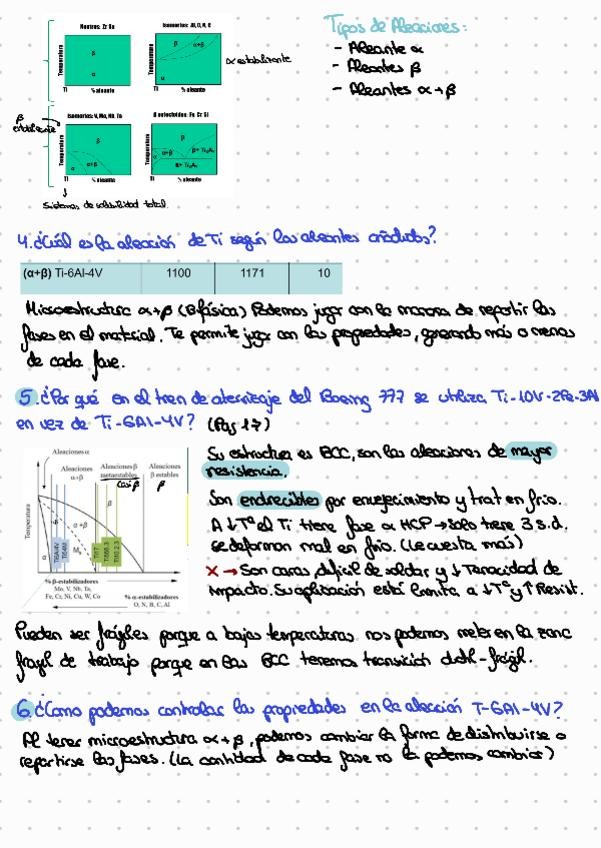 Tipos de Aleaciones:
- Aleante α
- Aleantes β
- Aleantes α+β
Neutros: Zr Sn
Isomorfos: Al, O, N, C
Temperatura
β
α
Ti
% aleante
Temperatura
β
α+β
α
Ti
% aleante
α estabilizante
β estabilizante
Isomorfos: V, Mo, Nb, Ta
β eutectoides: Fe Cr Si
Temperatura
β
α
α+β
Ti
% aleante
Temperatura
β
α
α+β
Ti
% aleante
Sistemas de solubilidad total
4. ¿Cuál es la aleación de Ti según los aleantes añadidos?
(α+β) Ti-6Al-4V 1100 1171 10
Microestructura α+β (Bifásica) Podemos jugar con la manera de repartir las
fases en el material. Te permite jugar con las propiedades, generando más o menos
de cada fase.
5. ¿Por qué en el tren de aterrizaje del Boeing 777 se utiliza Ti-10V-2Fe-3Al
en vez de Ti-6Al-4V? (Pag 17)
Aleaciones α
Aleaciones α+β
Aleaciones β metaestables
Casi β
Aleaciones β estables
β
Temperatura
β
α+β
α
Ms
% β-estabilizadores
Mo, V, Nb, Ta,
Fe, Cr, Ni, Cu, W, Co
% α-estabilizadores
O, N, B, C, Al
Su estructura es BCC, son las aleaciones de mayor
resistencia.
Son endurecibles por envejecimiento y trat en frío.
A ↓Tº el Ti tiene fase α HCP → solo tiene 3 s.d.
se deforman mal en frío. (Le cuesta más)
X → Son caras, difícil de soldar y ↓ Tenacidad de
impacto. Su aplicación está limita a ↓Tº y ↑ Resist.
Pueden ser frágiles porque a bajas temperaturas nos podemos meter en la zona
frágil de trabajo porque en las BCC tenemos transición dúctil-frágil.
6. ¿Cómo podemos controlar las propiedades en la aleación T-6Al-4V?
Al tener microestructura α+β, podemos cambiar la forma de distribuirse o
repartirse las fases. (La cantidad de cada fase no la podemos cambiar)